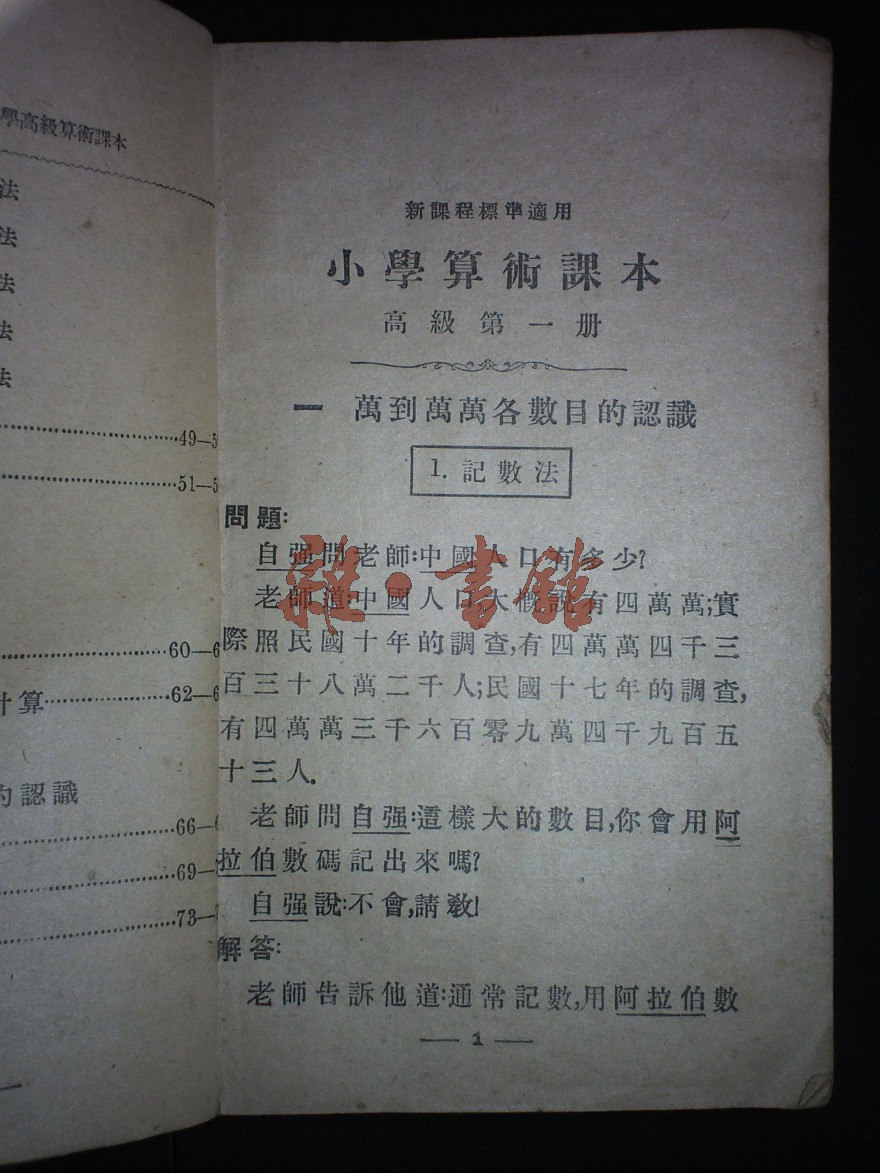 學高級算術課本
法
法
法
法
法
49—5
51—5
60—6
計算 62—6
的認識
66—6
69—
73—
新課程標準適用
小學算術課本
高級第一册
一 萬到萬萬各數目的認識
1. 記數法
問題:
自强問老師:中國人口有多少?
老師道:中國人口,大概說有四萬萬;實
際照民國十年的調查,有四萬萬四千三
百三十八萬二千人;民國十七年的調查,
有四萬萬三千六百零九萬四千九百五
十三人.
老師問自强:這樣大的數目,你會用阿
拉伯數碼記出來嗎?
自强說:不會,請教!
解答:
老師告訴他道:通常記數,用阿拉伯數
— 1 —
雜·書館